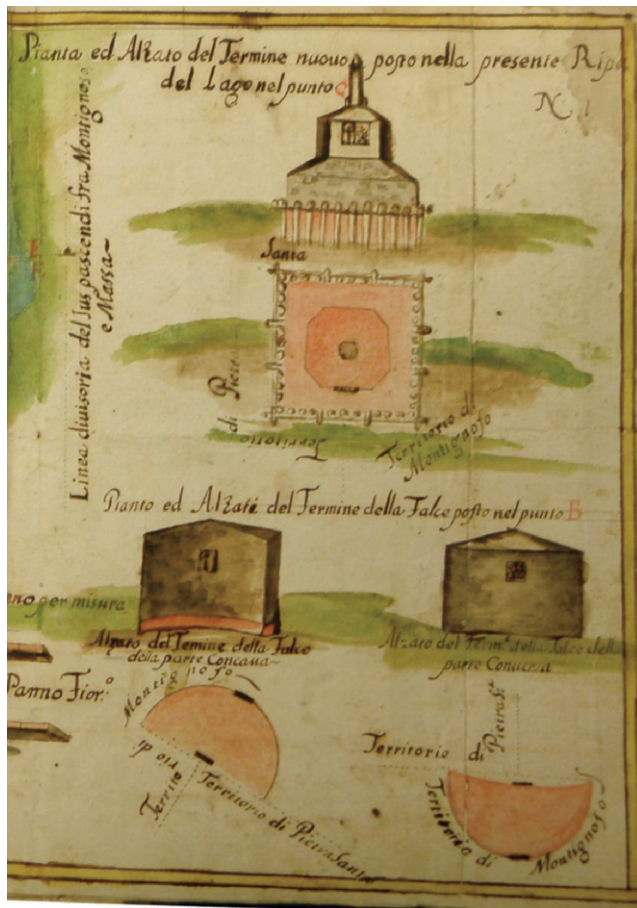 Pianta ed Alzato del Termine nuouo posto nella presente Ripa
del Lago nel punto C
N. 1
Linea diuisoria del Jus pascendi fra Montignoso
e Massa
Santa
di Pietra
Territorio
Territorio di
Montignoso
Pianto ed Alzati del Termine della Falce posto nel punto B
no per misura
Alzato del Temine della Falce
della parte Concaua
Alzato del Term.e della Falce della
parte Conuessa
Panno Fior.o
Montignoso
Territorio di
Territorio di PietraSanta
Territorio di Pietras.ta
Territorio di Montignoso